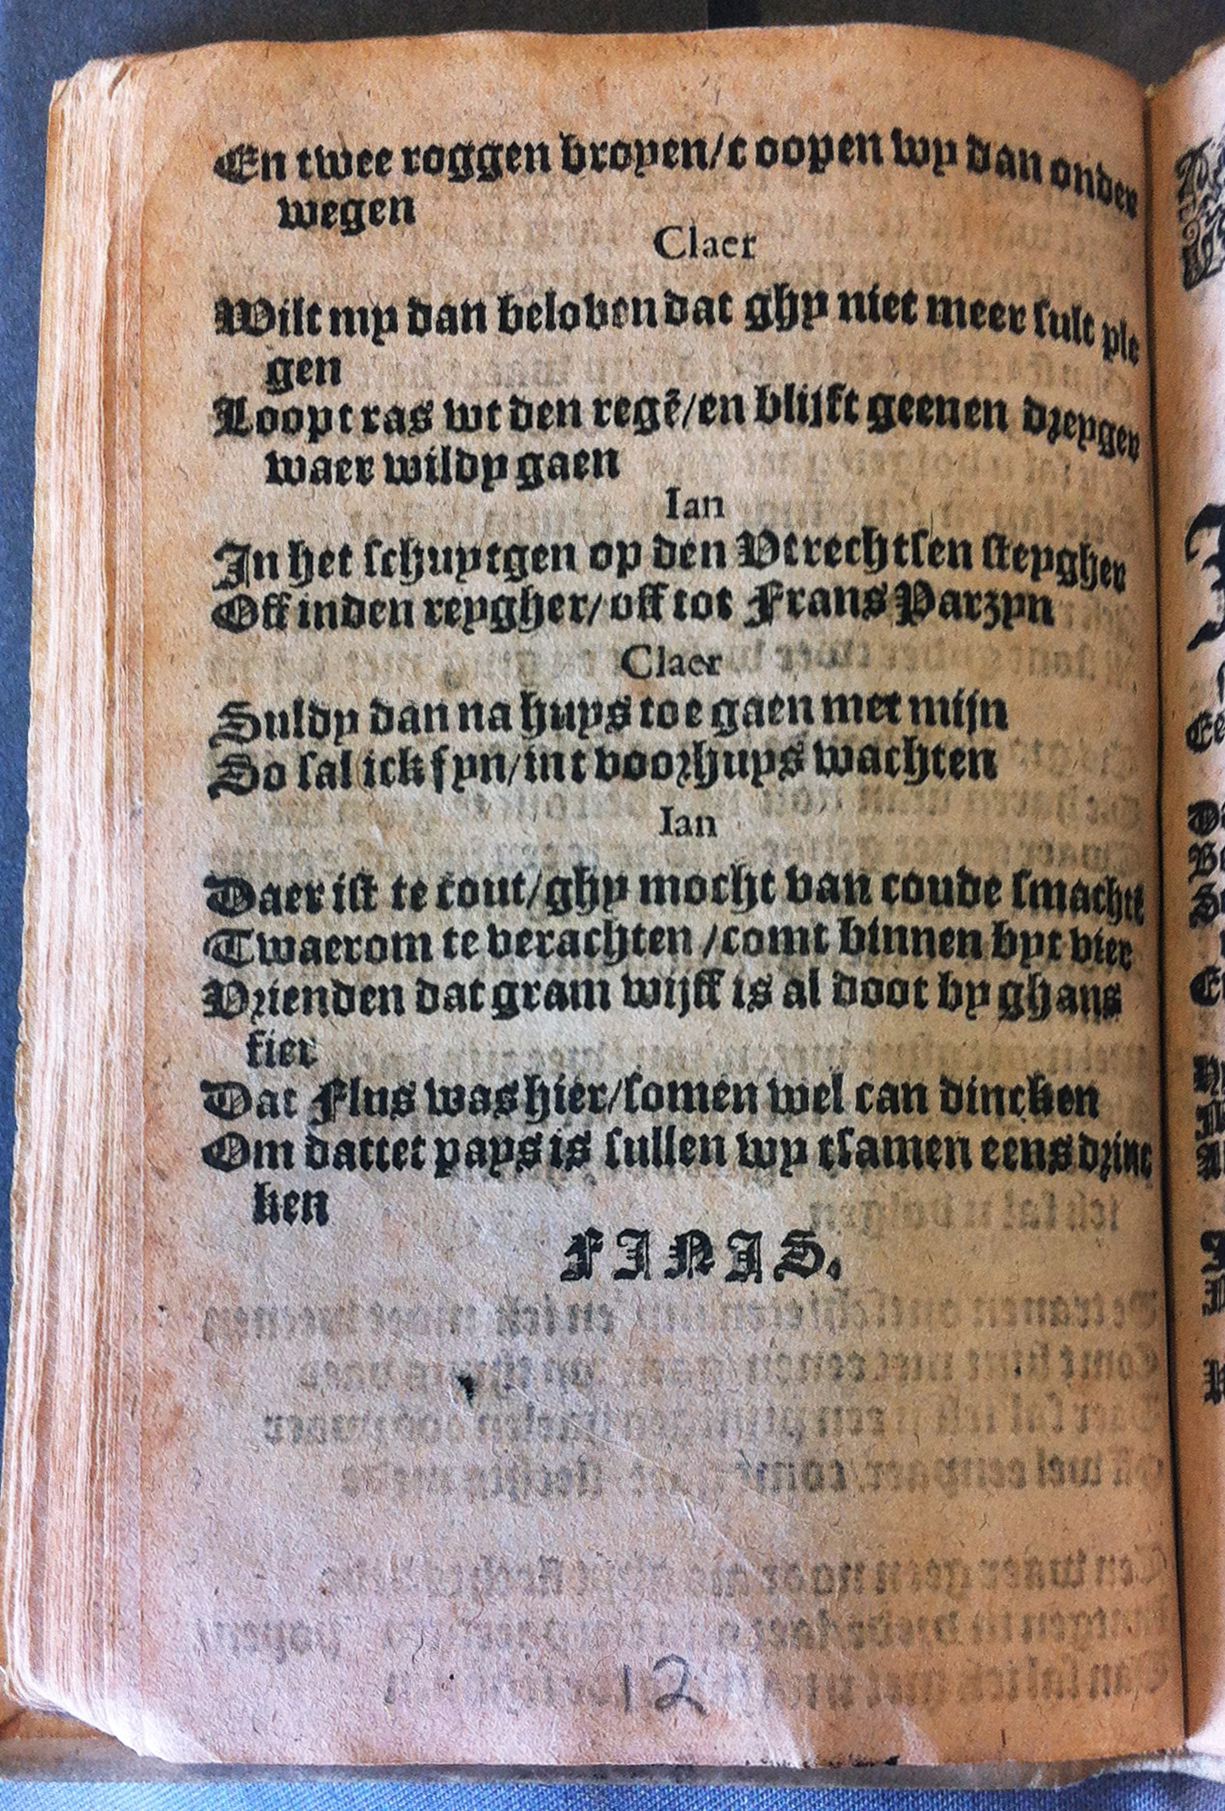 En twee roggen broyen/t oopen wy dan onder
wegen
Claer
Wilt my dan beloven dat ghy niet meer sult ple
gen
Loopt ras wt den regẽ/en blijft geenen dreyger
waer wildy gaen
Ian
In het schuytgen op den Vtrechtsen steygher
Off inden reygher/off tot Frans Parzyn
Claer
Suldy dan na huys toe gaen met mijn
So sal ick fyn/int voorhuys wachten
Ian
Daer ist te cout/ghy mocht van coude smachtẽ
Twaerom te verachten /comt binnen byt vier
Vrienden dat gram wijff is al doot by ghans
fier
Dat Flus was hier/somen wel can dincken
Om dattet pays is sullen wy tsamen eens drinc
ken
FINIS.
12